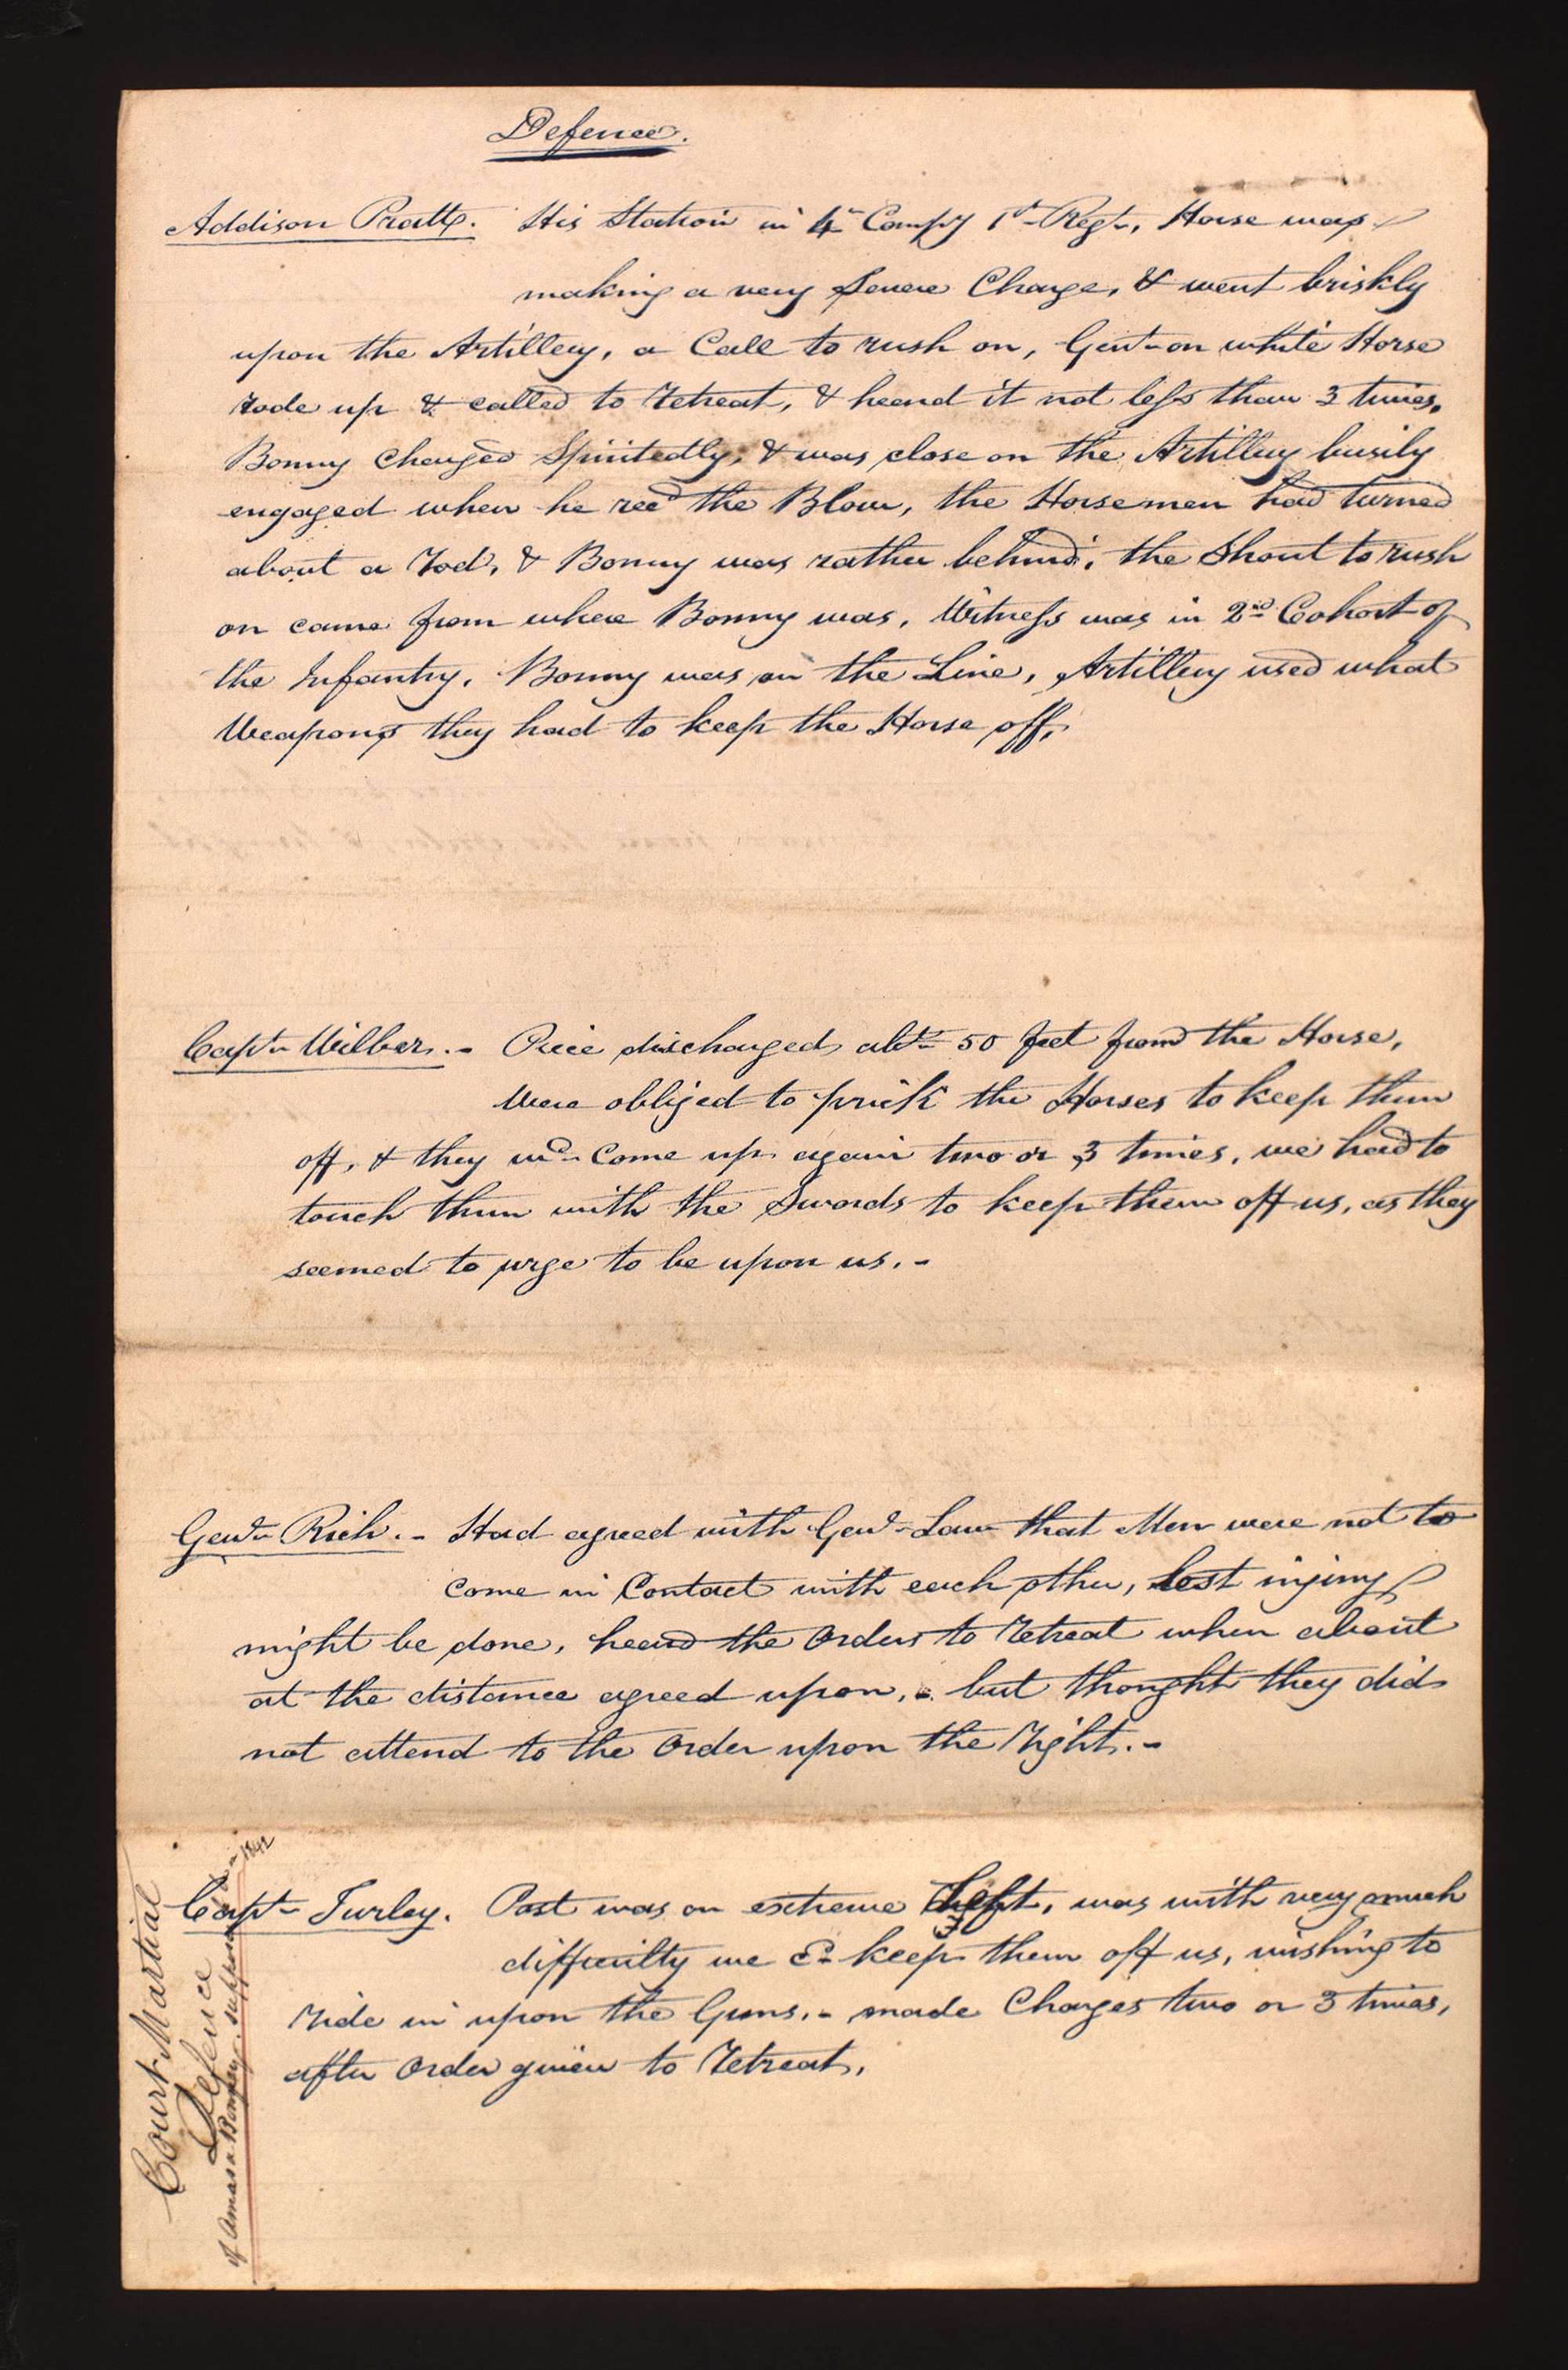 Defence.
Addison Pratt. His Station in 4th Compy 1st Regt, Horse was
making a very Severe Charge, & went briskly
upon the Artillery, a Call to rush on, Genl on white Horse
rode up & called to retreat, & heard it not less than 3 times.
Bonny Charged Spiritedly, & was close on the Artillery busily
engaged when he recd the Blow, the Horsemen had turned
about a rod, & Bonny was rather behind, the Shout to rush
on came from where Bonny was, Witness was in 2nd Cohort of
the Infantry, Bonny was on the Line, Artillery used what
Weapons they had to keep the Horse off,
Captn Wilber.- Piece discharged abt 50 feet from the Horse,
Were obliged to prick the Horses to keep them
off, & they wd come up again two or 3 times, we had to
touch them with the Swords to keep them off us, as they
seemed to urge to be upon us.-
Genl Rich.- Had agreed with Genl Law that Men were not to
come in Contact with each other, lest injury
might be done, heard the Orders to retreat when about
at the distance agreed upon,- but thought they did
not attend to the Order upon the right.-
Captn Turley. Post was on extreme Left, was with very much
difficulty we Cd keep them off us, wishing to
ride in upon the Guns.- made Charges two or 3 times,
after Order given to retreat.
Court Martial
Defence
of Amasa Bonney. supposed 1842